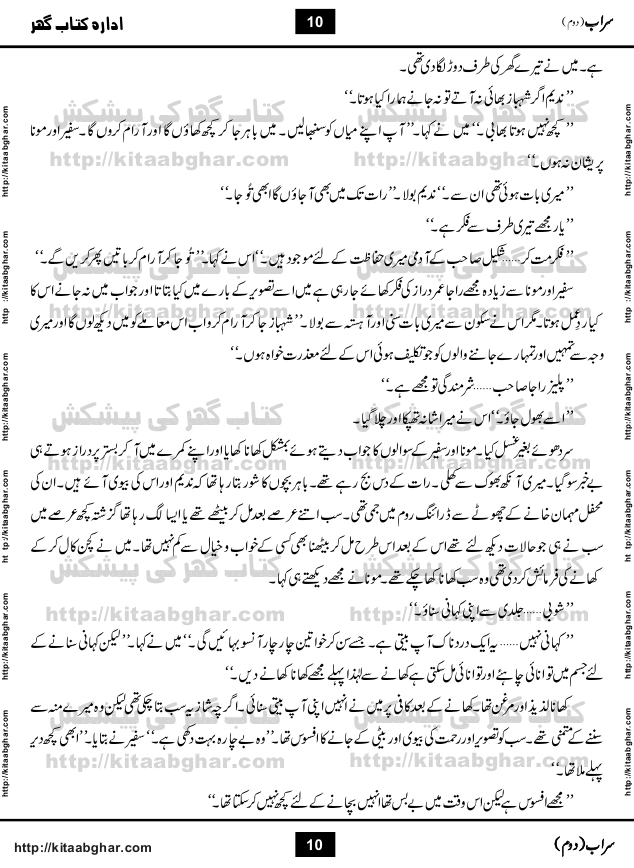 سراب (دوم)
10
ادارہ کتاب گھر
ہے۔ میں نے تیرے گھر کی طرف دوڑ لگا دی تھی۔
’’ ندیم اگر شہباز بھائی نہ آتے تو نہ جانے ہمارا کیا ہوتا۔‘‘
’’ کچھ نہیں ہوتا بھابی۔‘‘ میں نے کہا۔’’ آپ اپنے میاں کو سنبھالیں۔ میں باہر جا کر کچھ کھاؤں گا اور آرام کروں گا۔ سفیر اور مونا
پریشان نہ ہوں۔‘‘
’’ میری بات ہوئی تھی ان سے۔‘‘ ندیم بولا۔’’ رات تک میں بھی آ جاؤں گا ابھی تُو جا۔‘‘
’’ یار مجھے تیری طرف سے فکر ہے۔‘‘
’’ فکر مت کر......شکیل صاحب کے آدمی میری حفاظت کے لئے موجود ہیں۔‘‘ اس نے کہا۔’’ تُو جا کر آرام کر باتیں پھر کریں گے۔‘‘
سفیر اور مونا سے زیادہ مجھے راجا عمر دراز کی فکر کھائے جا رہی ہے میں اسے تصویر کے بارے میں کیا بتاتا اور جواب میں نہ جانے اس کا
کیا ردِعمل ہوتا۔ مگر اس نے سکون سے میری بات سنی اور آہستہ سے بولا۔’’ شہباز جا کر آرام کرو اب اس معاملے کو میں دیکھ لوں گا اور میری
وجہ سے تمہیں اور تمہارے جاننے والوں کو جو تکلیف ہوئی اس کے لئے معذرت خواہ ہوں۔‘‘
’’ پلیز راجا صاحب......شرمندگی تو مجھے ہے۔‘‘
’’ اسے بھول جاؤ۔‘‘ اس نے میرا شانہ تھپکا اور چلا گیا۔
سر دھوئے بغیر غسل کیا۔ مونا اور سفیر کے سوالوں کا جواب دیتے ہوئے بمشکل کھانا کھایا اور اپنے کمرے میں آ کر بستر پر دراز ہوتے ہی
بے خبر سو گیا۔ میری آنکھ بھوک سے کھلی۔ رات کے دس بج رہے تھے۔ باہر بچوں کا شور بتا رہا تھا کہ ندیم اور اس کی بیوی آئے ہیں۔ ان کی
محفل مہمان خانے کے چھوٹے سے ڈرائنگ روم میں جمی تھی۔ سب اتنے عرصے بعد مل کر بیٹھے تھے یا ایسا لگ رہا تھا گزشتہ کچھ عرصے میں
سب نے ہی جو حالات دیکھ لئے تھے اس کے بعد اس طرح مل کر بیٹھنا بھی کسی کے خواب و خیال سے کم نہیں تھا۔ میں نے کچن کال کر کے
کھانے کی فرمائش کر دی تھی وہ سب کھانا کھا چکے تھے۔ مونا نے مجھے دیکھتے ہی کہا۔
’’ شوبی......جلدی سے اپنی کہانی سناؤ۔‘‘
’’ کہانی نہیں......یہ ایک دردناک آپ بیتی ہے۔ جسے سن کر خواتین چار چار آنسو بہائیں گی۔‘‘ میں نے کہا۔’’ لیکن کہانی سنانے کے
لئے جسم میں توانائی چاہئے اور توانائی مل سکتی ہے کھانے سے لہٰذا پہلے مجھے کھانا کھانے دیں۔‘‘
کھانا لذیذ اور مرغن تھا۔ کھانے کے بعد کافی پر میں نے انہیں اپنی آپ بیتی سنائی۔ اگرچہ شازیہ سب بتا چکی تھی لیکن وہ میرے منہ سے
سننے کے متمنی تھے۔ سب کو تصویر اور رحمت کی بیوی اور بیٹی کے جانے کا افسوس تھا۔’’ وہ بے چارہ بہت دکھی ہے۔‘‘ سفیر نے بتایا۔’’ ابھی کچھ دیر
پہلے ملا تھا۔‘‘
’’ مجھے افسوس ہے لیکن اس وقت میں بے بس تھا انہیں بچانے کے لئے کچھ نہیں کر سکتا تھا۔‘‘
سراب (دوم)
10
http://kitaabghar.com